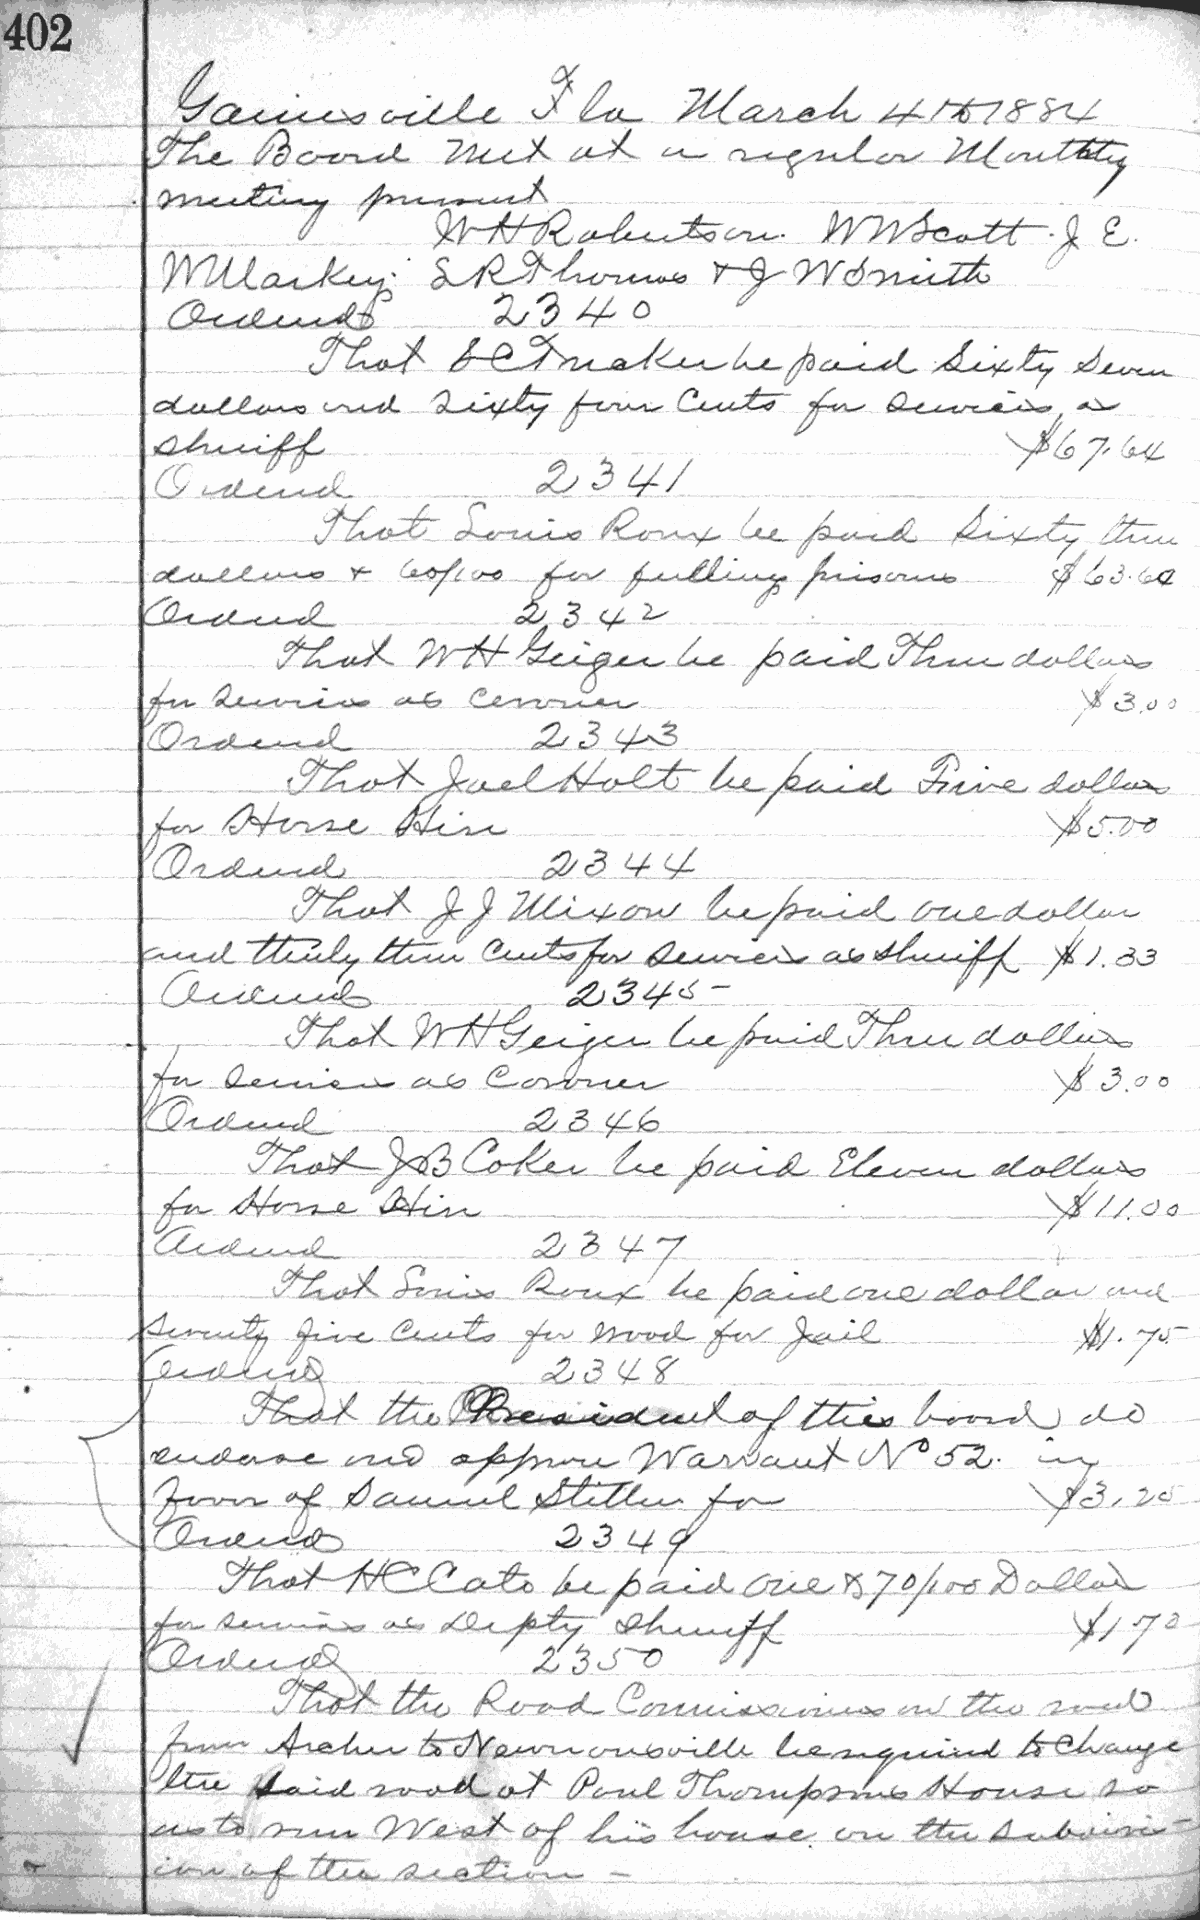 402
Gainesville Fla March 4th 1884
The Board Met at a regular Monthly
meeting present
W H Robertson. W W Scott. J E.
W Markey. S R Thomas & J W Smith
Ordered 2340
That S C Tucker be paid Sixty Seven
dollars and Sixty four Cents for services as
Sheriff $67.64
Ordered 2341
That Louis Roux be paid Sixty three
dollars & 60/100 for feeding prisoners $63.60
Ordered 2342
That W H Geiger be paid Three dollars
for services as coroner $3.00
Ordered 2343
That Joel Holt be paid Five dollars
for Horse Hire $5.00
Ordered 2344
That J J Mixon be paid one dollar
and thirty three Cents for services as sheriff $1.33
Ordered 2345
That W H Geiger be paid Three dollars
for services as Coroner $3.00
Ordered 2346
That J B Coker be paid Eleven dollars
for Horse Hire $11.00
Ordered 2347
That Louis Roux be paid one dollar and
Seventy five Cents for wood for Jail $1.75
Ordered 2348
That the President of this board do
endorse and approve Warrant No 52. in
favor of Samuel for $3.25
Ordered 2349
That H C Cato be paid one & 70/100 Dollar
for services as Depty Sheriff $1.70
Ordered 2350
That the Road Commissioners on the road
from Archer to Newnonsville be required to Change
the said road at Paul Thompsons House so
as to run West of his house on the subdivis-
ion of the section -